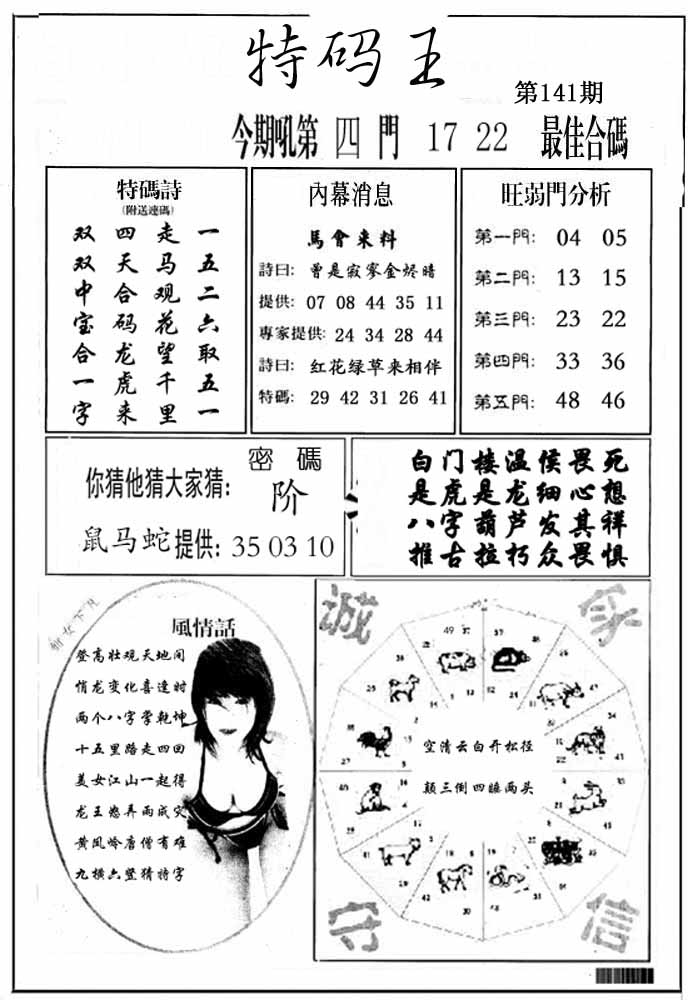 特码王
第141期
今期吼第 四 門 17 22 最佳合碼
特碼詩
(附送連碼)
双四走一
双天马五
中合观二
宝码花六
合龙望取
一虎千五
字来里一
內幕消息
馬會来料
詩曰: 曾是寂寥金烬暗
提供: 07 08 44 35 11
專家提供: 24 34 28 44
詩曰: 红花绿草来相伴
特碼: 29 42 31 26 41
旺弱門分析
第一門: 04 05
第二門: 13 15
第三門: 23 22
第四門: 33 36
第五門: 48 46
密碼
你猜他猜大家猜: 阶
鼠马蛇提供: 35 03 10
白门楼温侯畏死
是虎是龙细心想
八字葫芦发其祥
推古拉朽众畏惧
風情話
登高壮观天地间
悄龙变化喜逢时
两个八字掌乾坤
十五里路走四回
美女江山一起得
龙王怒弄雨成灾
黄风岭唐僧有难
九横六竖猜特字
诚
守
信
空清云白开松径
颠三倒四睦两头